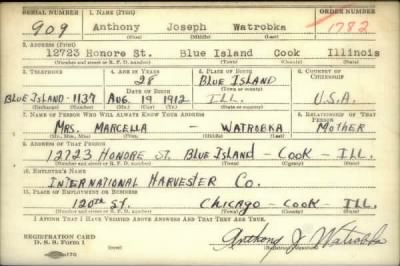 SERIAL NUMBER 1. NAME (Print) ORDER NUMBER
909 Anthony Joseph Watrobka 1782
(First) (Middle) (Last)
2. ADDRESS (Print)
12723 Honore St. Blue Island Cook Illinois
(Number and street or R. F. D. number) (Town) (County) (State)
3. TELEPHONE 4. AGE IN YEARS 5. PLACE OF BIRTH 6. COUNTRY OF CITIZENSHIP
28 BLUE ISLAND
DATE OF BIRTH (Town or county)
BLUE ISLAND-1137 AUG. 19 1912 ILL. U.S.A.
(Exchange) (Number) (Mo.) (Day) (Yr.) (State or country)
7. NAME OF PERSON WHO WILL ALWAYS KNOW YOUR ADDRESS 8. RELATIONSHIP OF THAT PERSON
MRS. MARCELLA - WATROBKA MOTHER
(Mr., Mrs., Miss) (First) (Middle) (Last)
9. ADDRESS OF THAT PERSON
12723 HONORE ST. BLUE ISLAND - COOK - ILL.
(Number and street or R. F. D. number) (Town) (County) (State)
10. EMPLOYER'S NAME
INTERNATIONAL HARVESTER CO.
11. PLACE OF EMPLOYMENT OR BUSINESS
120TH ST. CHICAGO - COOK - ILL.
(Number and street or R. F. D. number) (Town) (County) (State)
I AFFIRM THAT I HAVE VERIFIED ABOVE ANSWERS AND THAT THEY ARE TRUE.
REGISTRATION CARD
D. S. S. Form 1 Anthony J Watrobka